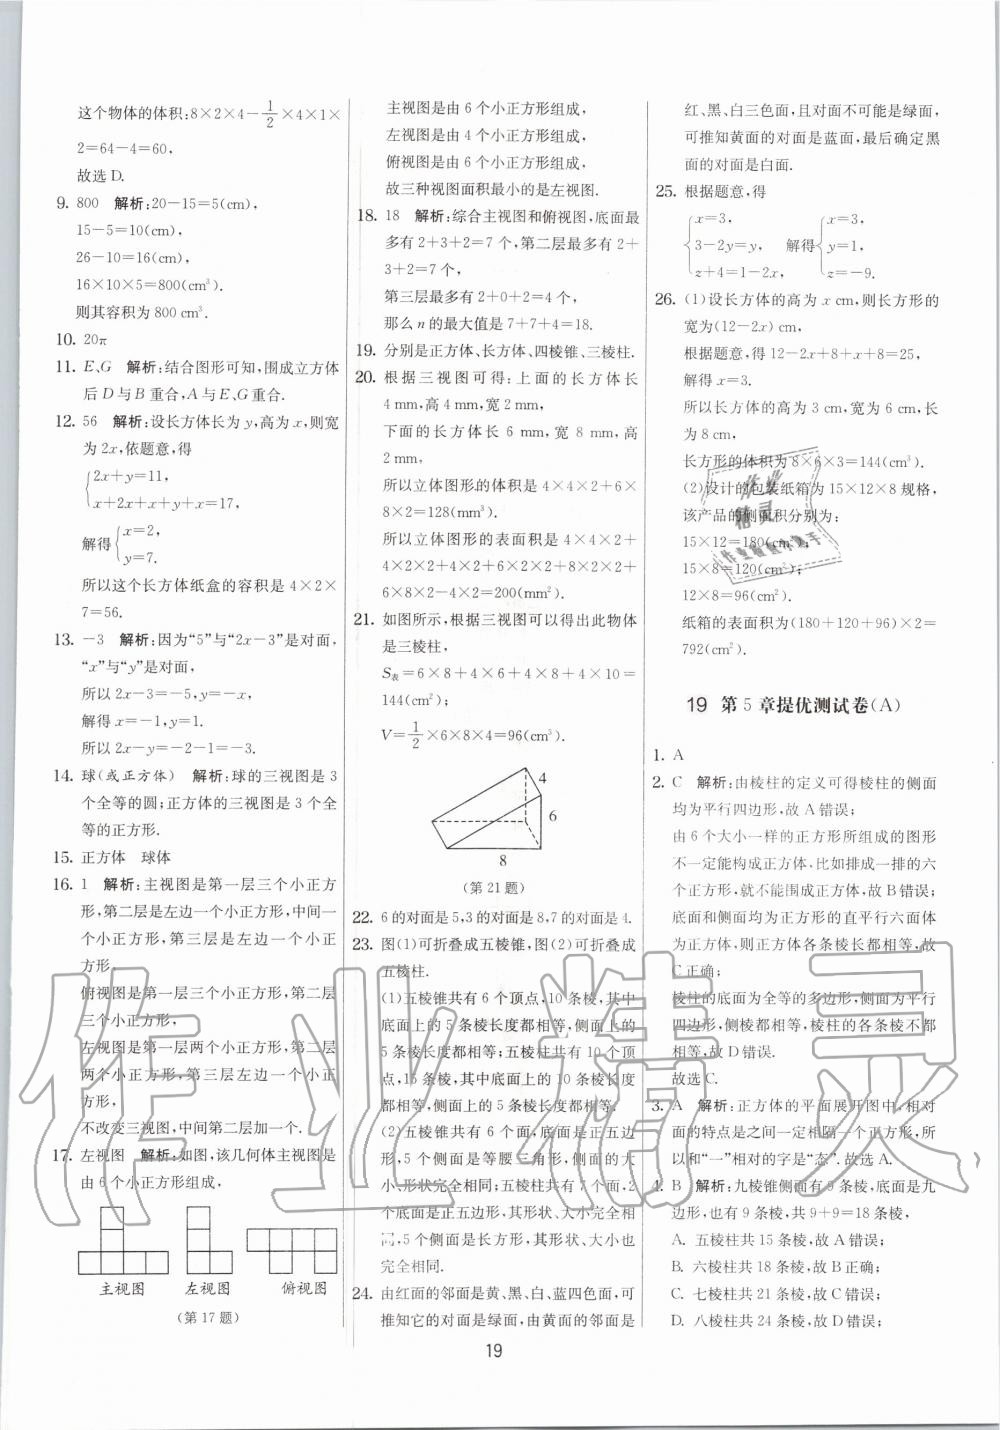 这个物体的体积:8×2×4-1/2×4×1×
2=64-4=60,
故选D.
9. 800 解析:20-15=5(cm),
15-5=10(cm),
26-10=16(cm),
16×10×5=800(cm³).
则其容积为800 cm³.
10. 20π
11. E、G 解析:结合图形可知,围成立方体
后D与B重合,A与E、G重合.
12. 56 解析:设长方体长为y,高为x,则宽
为2x,依题意,得
{2x+y=11,
x+2x+x+y+x=17,
解得{x=2,
y=7.
所以这个长方体纸盒的容积是4×2×
7=56.
13. -3 解析:因为“5”与“2x-3”是对面,
“x”与“y”是对面,
所以2x-3=-5,y=-x,
解得x=-1,y=1,
所以x-y=-2-1=-3.
14. 球(或正方体) 解析:球的三视图是3
个全等的圆;正方体的三视图是3个全
等的正方形.
15. 正方体 球体
16. 1 解析:主视图是第一层三个小正方
形,第二层是左边一个小正方形,中间一
个小正方形,第三层是左边一个小正
方形,
俯视图是第一层三个小正方形,第二层
三个小正方形,
左视图是第一层两个小正方形,第二层
两个小正方形,第三层左边一个小正
方形,
不改变三视图,中间第二层加一个.
17. 左视图 解析:如图,该几何体主视图是
由6个小正方形组成,
主视图 左视图 俯视图
(第17题)
主视图是由6个小正方形组成,
左视图是由4个小正方形组成,
俯视图是由6个小正方形组成,
故三种视图面积最小的是左视图.
18. 18 解析:综合主视图和俯视图,底面最
多有2+3+2=7个,第二层最多有2+
3+2=7个,
第三层最多有2+0+2=4个,
那么n的最大值是7+7+4=18.
19. 分别是正方体、长方体、四棱锥、三棱柱.
20. 根据三视图可得:上面的长方体长
4 mm,高4 mm,宽2 mm,
下面的长方体长6 mm,宽8 mm,高
2 mm,
所以立体图形的体积是4×4×2+6×
8×2=128(mm³).
所以立体图形的表面积是4×4×2+
4×2×2+4×2+6×2×2+8×2×2+
6×8×2-4×2=200(mm²).
21. 如图所示,根据三视图可以得出此物体
是三棱柱,
S表=6×8+4×6+4×8+4×10=
144(cm²);
V=1/2×6×8×4=96(cm³).
4
6
8
(第21题)
22. 6的对面是5,3的对面是8,7的对面是4.
23. 图(1)可折叠成五棱锥,图(2)可折叠成
五棱柱.
(1)五棱锥共有6个顶点,10条棱,其中
底面上的5条棱长度都相等,侧面上的
5条棱长度都相等;五棱柱共有10个顶
点,15条棱,其中底面上的10条棱长度
都相等,侧面上的5条棱长度都相等.
(2)五棱锥共有6个面,底面是正五边
形,5个侧面是等腰三角形,侧面的大
小、形状完全相同;五棱柱共有7个面,2
个底面是正五边形,其形状、大小完全相
同,5个侧面是长方形,其形状、大小也
完全相同.
24. 由红面的邻面是黄、黑、白、蓝四色面,可
推知它的对面是绿面,由黄面的邻面是
红、黑、白三色面,且对面不可能是绿面,
可推知黄面的对面是蓝面,最后确定黑
面的对面是白面.
25. 根据题意,得
{x=3,
3-2y=y,
z+4=1-2x,
解得{x=3,
y=1,
z=-9.
26. (1)设长方体的高为x cm,则长方形的
宽为(12-2x) cm,
根据题意,得12-2x+8+x+8=25,
解得x=3.
所以长方体的高为3 cm,宽为6 cm,长
为8 cm,
长方形的体积为8×6×3=144(cm³).
(2)设计的包装纸箱为15×12×8规格,
该产品的侧面积分别为:
15×12=180(cm²);
15×8=120(cm²);
12×8=96(cm²);
纸箱的表面积为(180+120+96)×2=
792(cm²).
19 第5章提优测试卷(A)
1. A
2. C 解析:由棱柱的定义可得棱柱的侧面
均为平行四边形,故A错误;
由6个大小一样的正方形所组成的图形
不一定能构成正方体,比如排成一排的六
个正方形,就不能围成正方体,故B错误;
底面和侧面均为正方形的直平行六面体
为正方体,则正方体各条棱长都相等,故
C正确;
棱柱的底面为全等的多边形,侧面为平行
四边形,侧棱都相等,棱柱的各条棱不都
相等,故D错误.
故选C.
3. A 解析:正方体的平面展开图中,相对
面的特点是之间一定相隔一个正方形,所
以和“一”相对的字是“态”.故选A.
4. B 解析:九棱锥侧面有9条棱,底面是九
边形,也有9条棱,共9+9=18条棱,
A. 五棱柱共15条棱,故A错误;
B. 六棱柱共18条棱,故B正确;
C. 七棱柱共21条棱,故C错误;
D. 八棱柱共24条棱,故D错误;
19
作业精灵
作业精灵